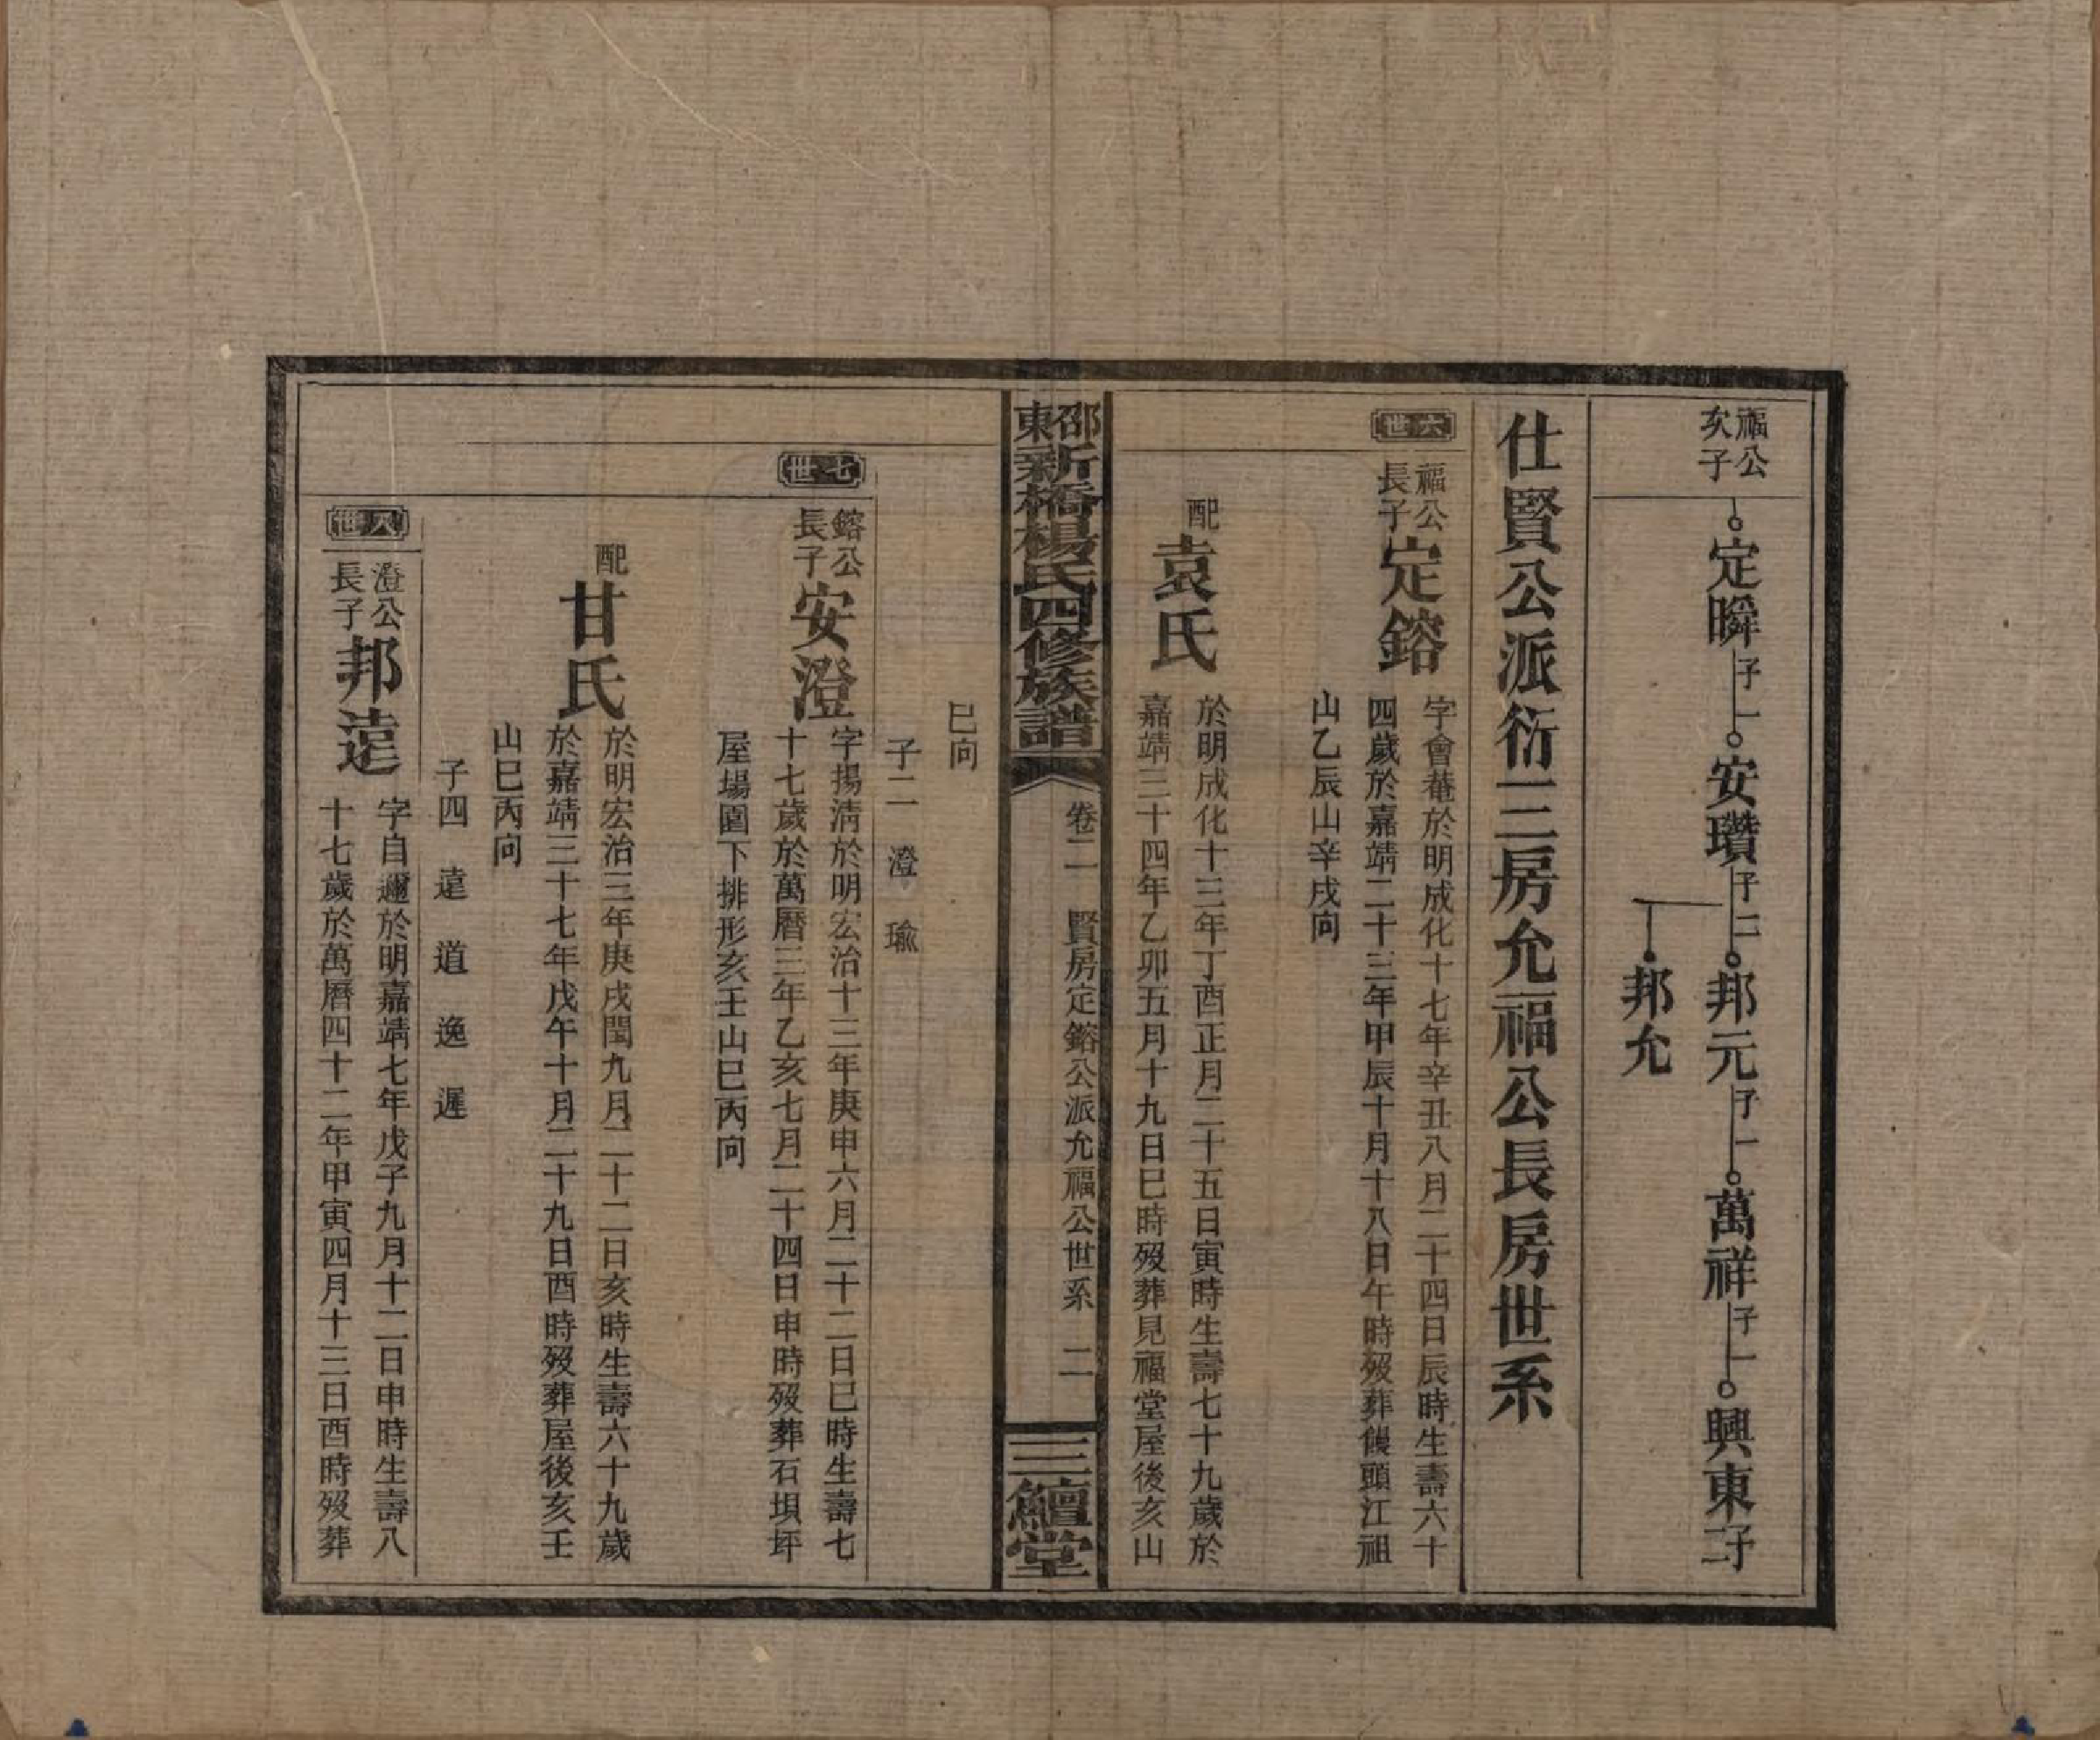 福公
次子
定瞬 子一 安瓚 子二 邦元 子一 萬祥 子一 興東 子二
邦允
仕賢公派衍三房允福公長房世系
六世
福公
長子
定鎔
字會菴於明成化十七年辛丑八月二十四日辰時生壽六十
四歲於嘉靖二十三年甲辰十月十八日午時歿葬饅頭江祖
山乙辰山辛戌向
配
袁氏
於明成化十三年丁酉正月二十五日寅時生壽七十九歲於
嘉靖三十四年乙卯五月十九日巳時歿葬見福堂屋後亥山
邵東新橋楊氏四修族譜
卷二 賢房定鎔公派允福公世系 二
三鱣堂
巳向
子二 澄 瑜
七世
鎔公
長子
安澄
字揚清於明宏治十三年庚申六月二十二日巳時生壽七
十七歲於萬曆三年乙亥七月二十四日申時歿葬石垻坪
屋場園下排形亥壬山巳丙向
配
甘氏
於明宏治三年庚戌閏九月二十二日亥時生壽六十九歲
於嘉靖三十七年戊午十月二十九日酉時歿葬屋後亥壬
山巳丙向
子四 遠 道 逸 遲
八世
澄公
長子
邦遠
字自邇於明嘉靖七年戊子九月十二日申時生壽八
十七歲於萬曆四十二年甲寅四月十三日酉時歿葬